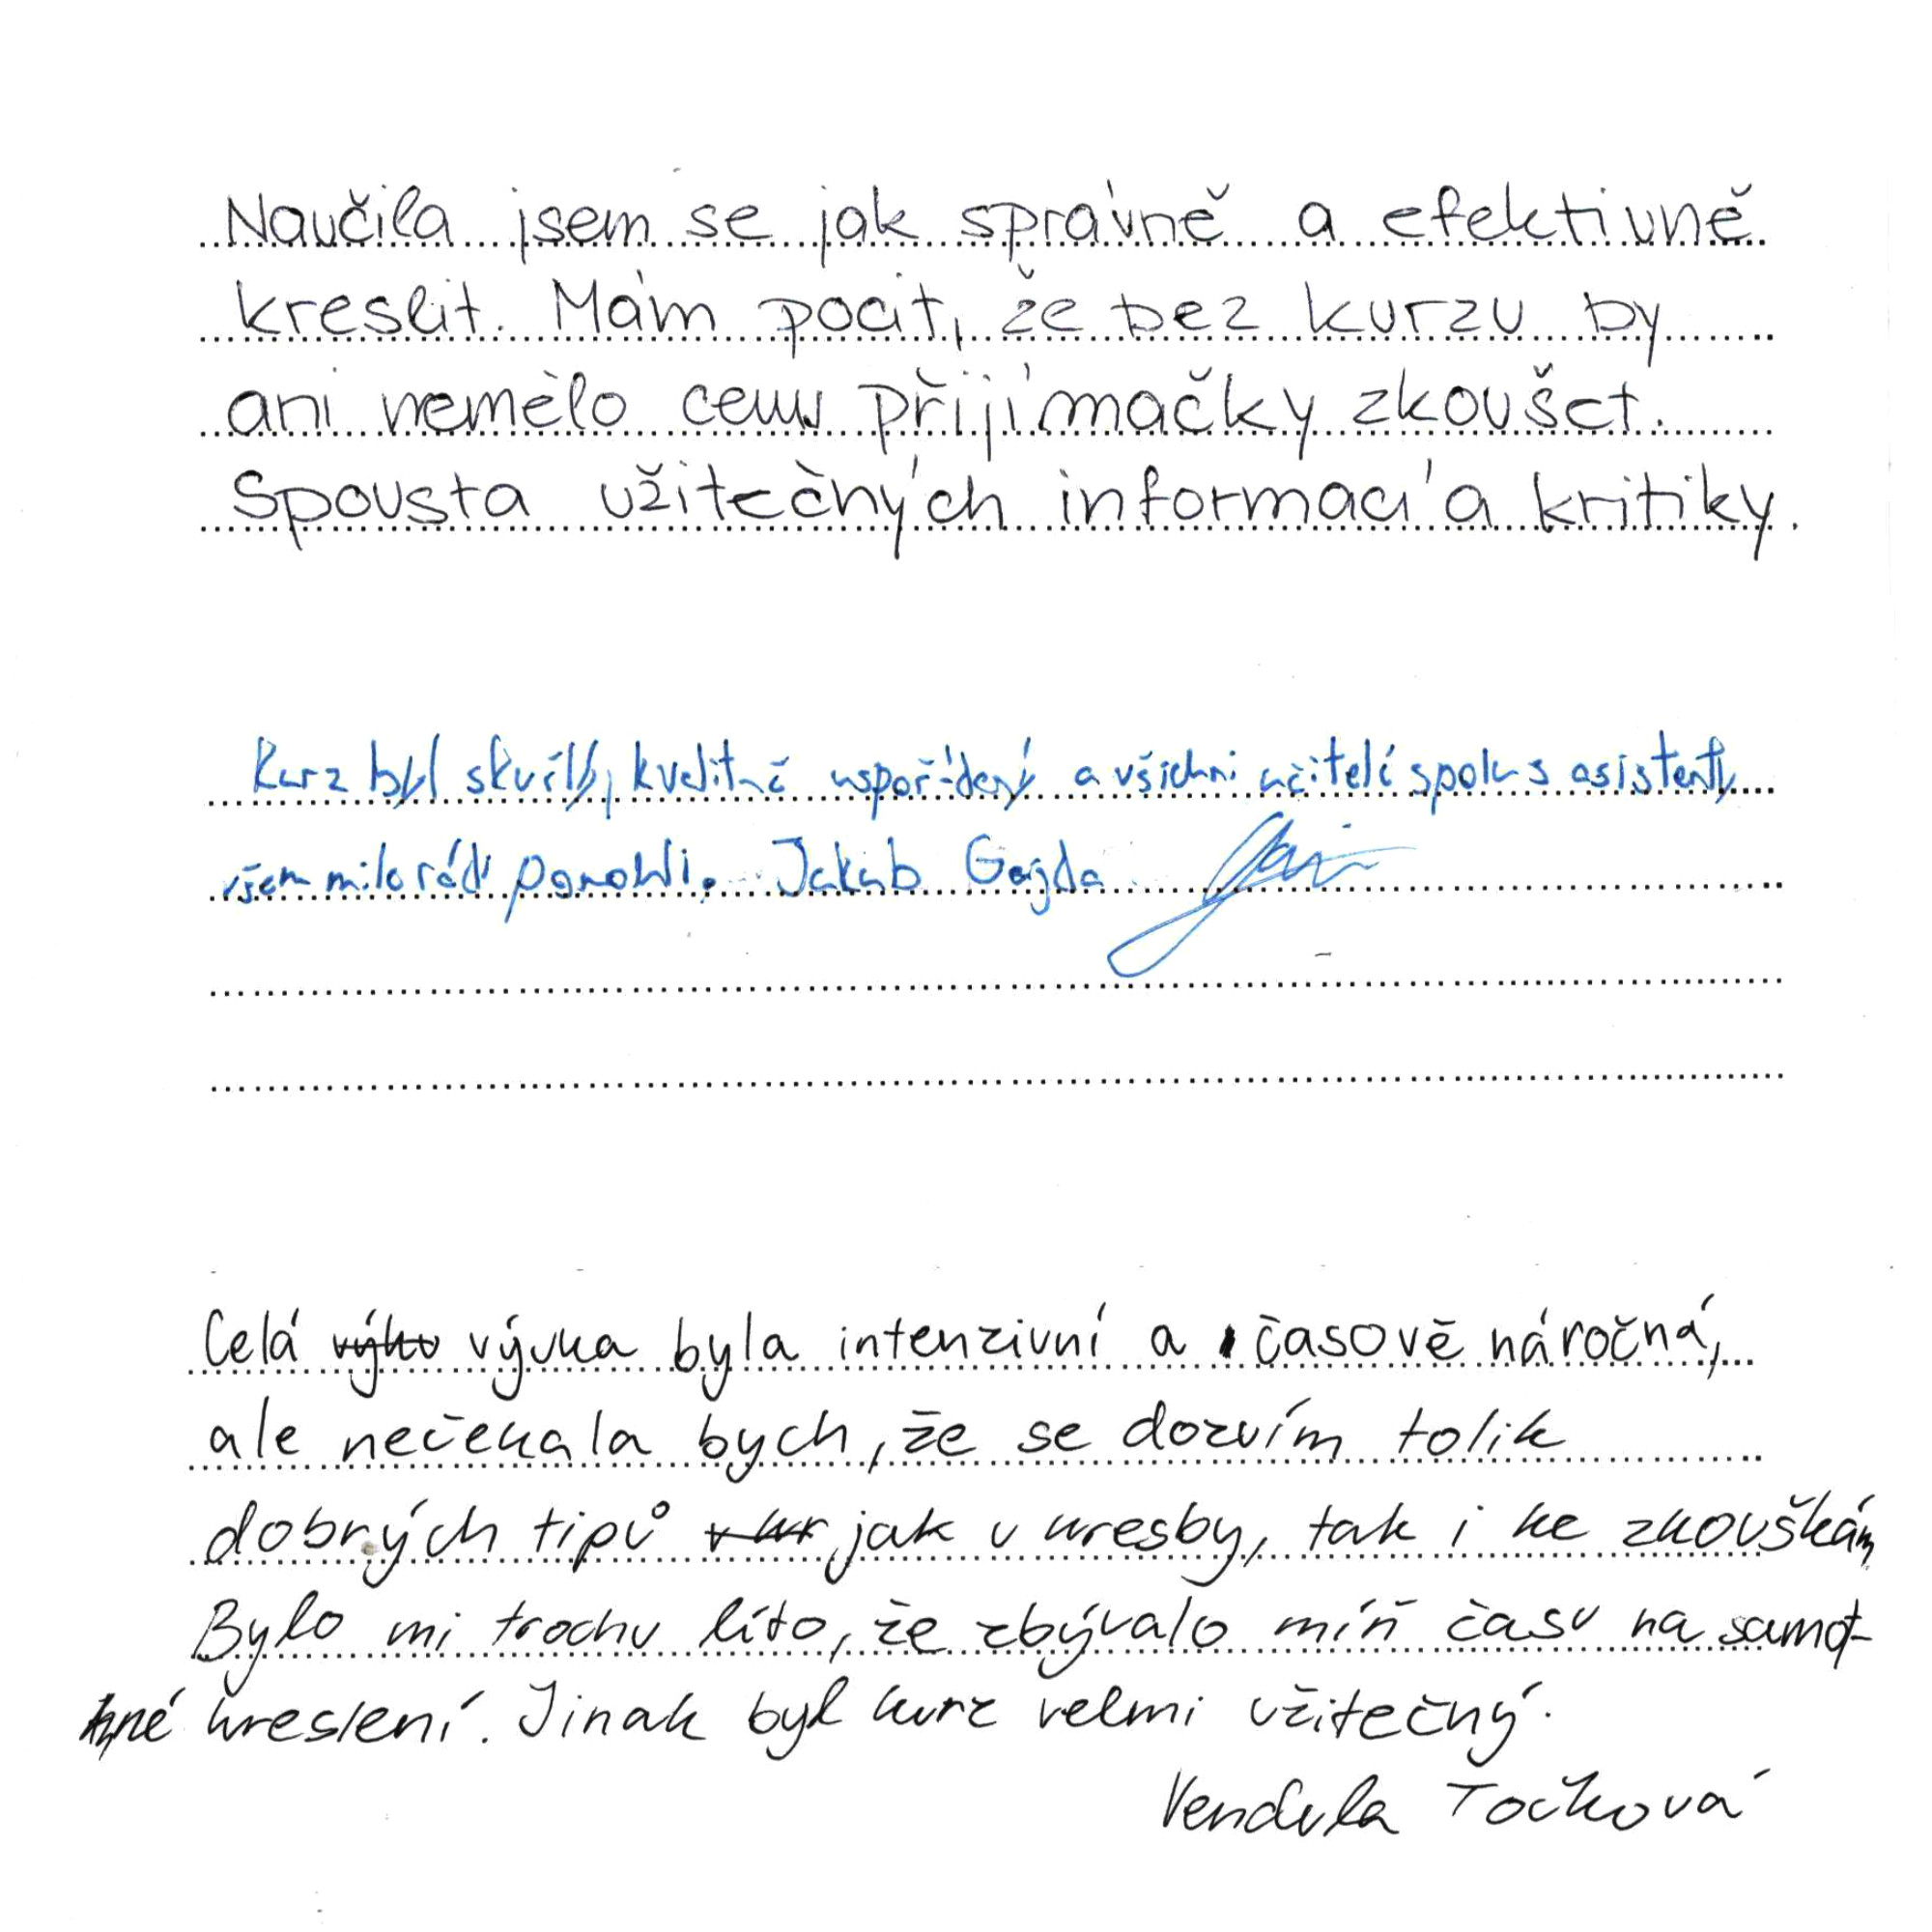 Naučila jsem se jak správně a efektivně
kreslit. Mám pocit, že bez kurzu by
ani nemělo cenu přijímačky zkoušet.
Spousta užitečných informací a kritiky.
Kurz byl skvělý, kvalitně uspořádený a všichni učitelé spolu s asistenty
všem milerádi pomohli. Jakub Gajda
Celá výuka byla intenzivní a časově náročná,
ale nečekala bych, že se dozvím tolik
dobrých tipů jak v kresby, tak i ke zkouškám
Bylo mi trochu líto, že zbývalo míň času na samot-
né kreslení. Jinak byl kurz velmi užitečný.
Vendula Točková